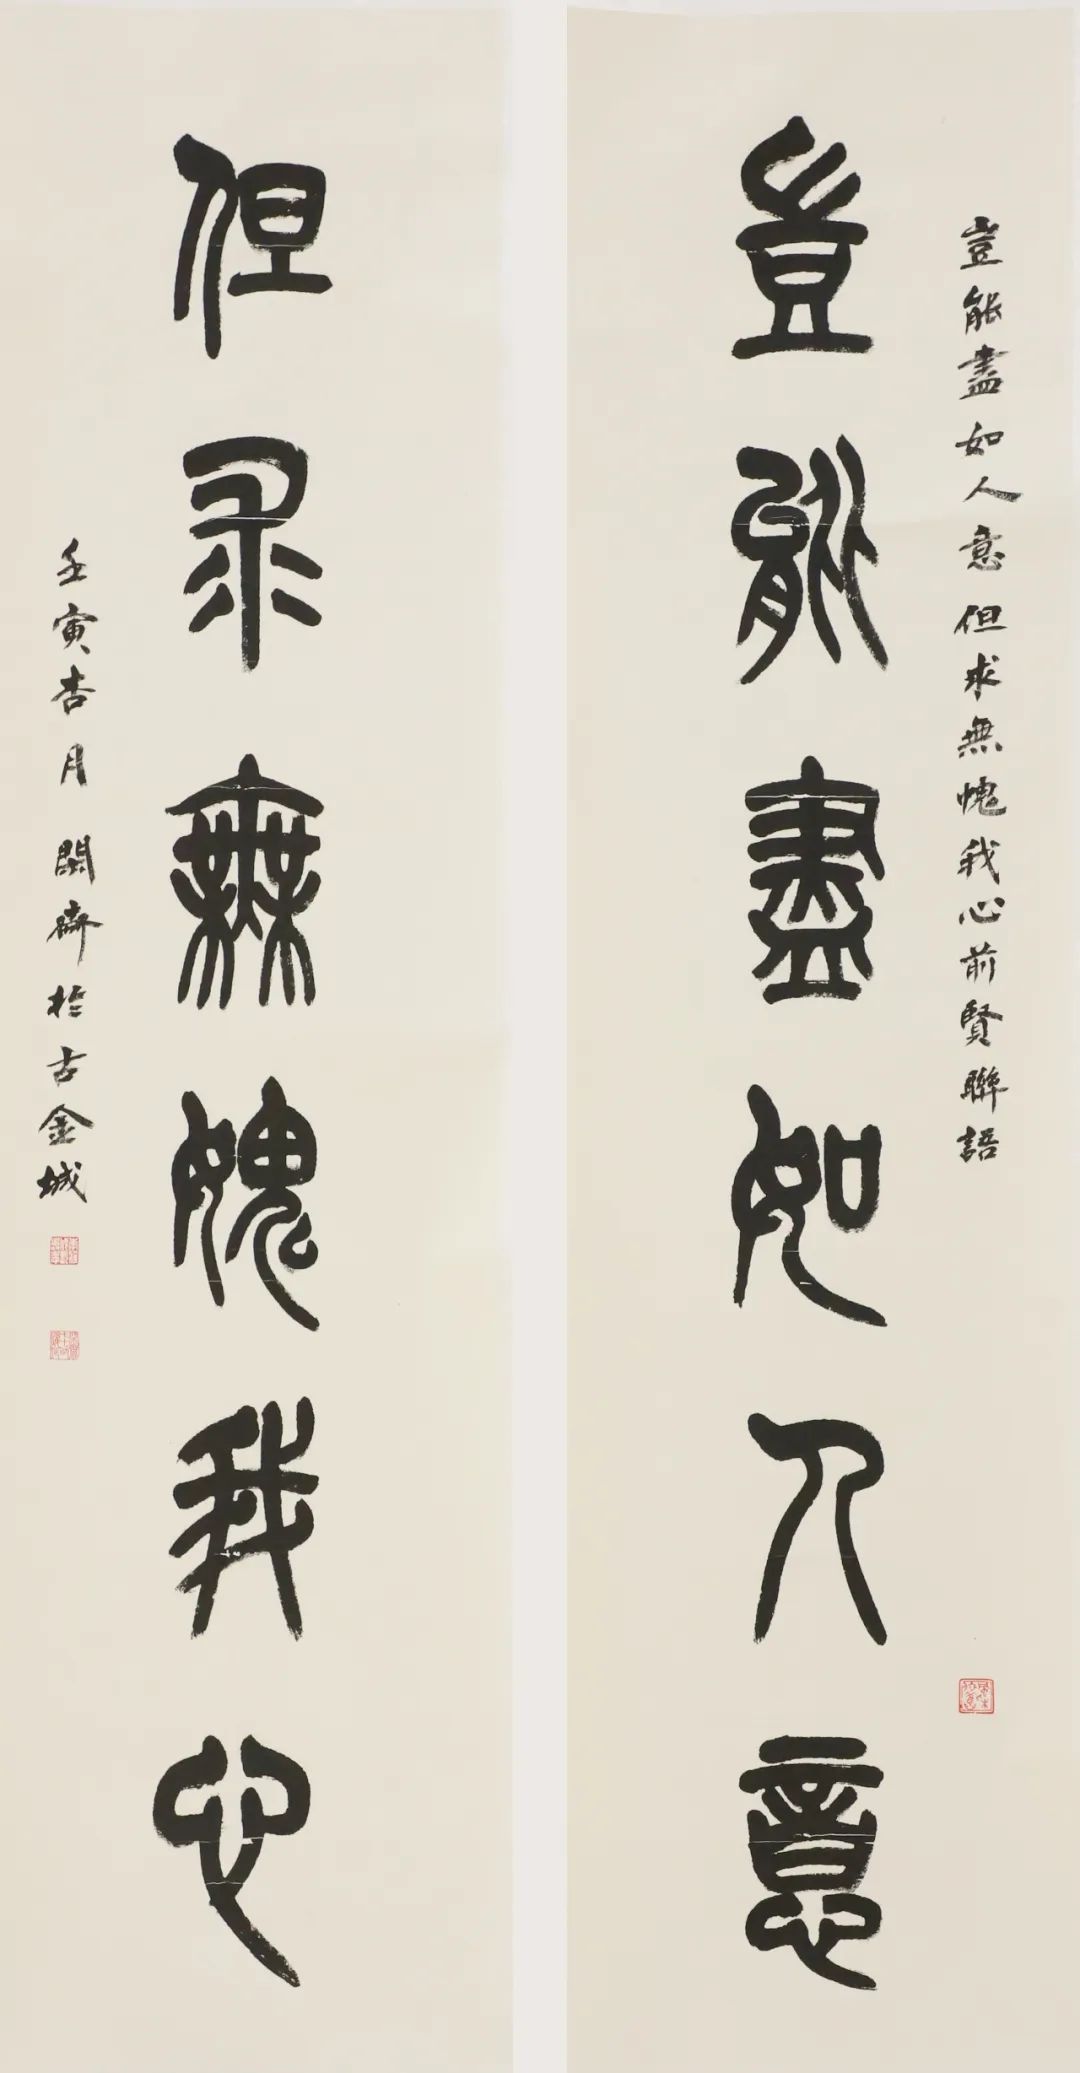 豈能盡如人意但求無愧我心前賢聯語
豈能盡如人意
但求無媿我心
壬寅杏月 齋於古金城